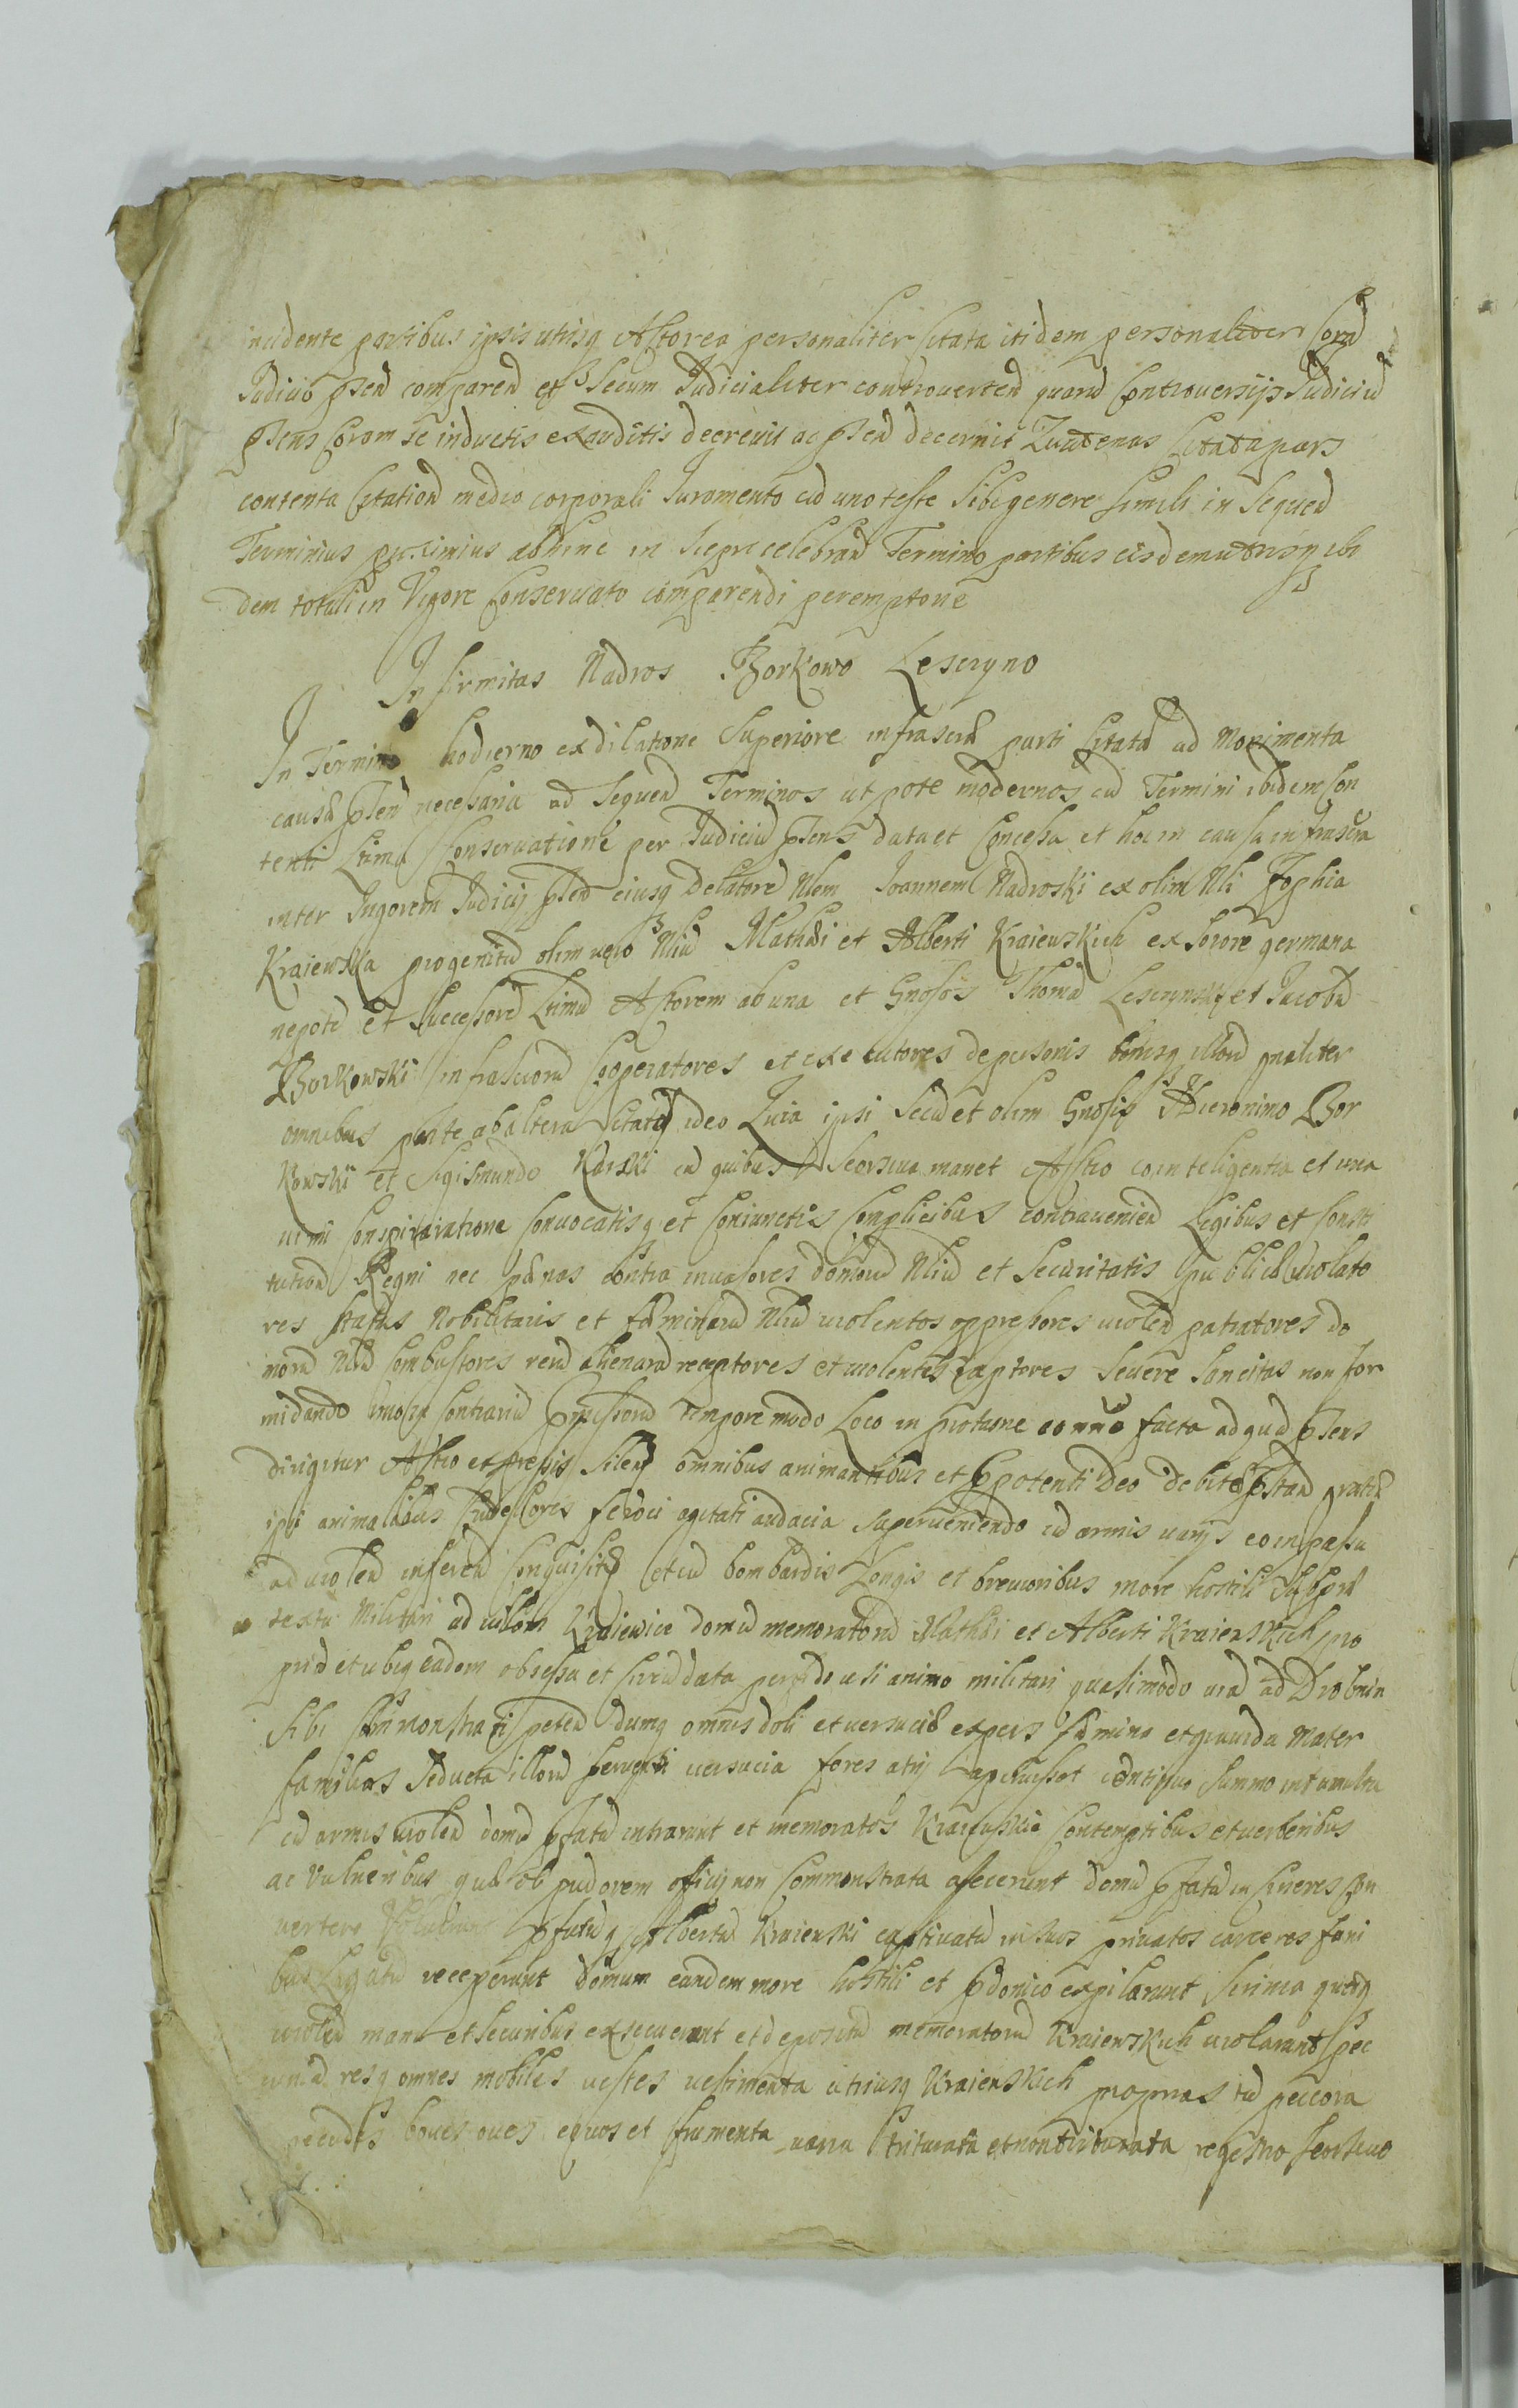 incidente partibus ipsis utrisq Actorea personaliter Citata itidem personaliter Cora
Judicio pten comparen et Secum Judicialiter controverten quaru Controversijs Judiciu
ptens Coram se inductis exauditis decrevit ac pten decernit Quatenus Citata pars
contenta Citation medio corporali Juramento cu uno teste Sibi genere simili in Sequen
Terminius proximius abhinc in celebran Termino partibus eisdem utrisq ibi
dem totali in Vigore Conservato comparendi peremptorie
Infirmitas Nadros Borkowo Lesczyno
In Termino hodierno ex dilatione Superiore infrascrã parti Citata ad Monimenta
causã pten necessaria ad Sequen Terminos ut pote modernos cu Termini ibidem Con
tenti Ltima Conservatione per Judiciu ptens data et Concessa et hoc in causa infrascra
inter Ingorem Judicij pten eiusq Delatore Nlem Joannem Nadroski ex olim Nli Zophia
Kraiewska progenitu olim vero Nliu Mathæi et Alberti Kraiewskich ex Sorore germana
nepote et Successore Ltimu Actorem ab una et Gnosos Thoma Lesczynski et Jacobu
Borkowski infrascroru Cooperatores et executores de personis bonisq illoru gnaliter
omnibus parte ab altera Citatos ideo Quia ipsi Secu et olim Gnosis Hieronimo Bor
kowski et Sigismundo Karski cu quibus Seorsiva manet Actio cointeligentia et una
nimi Conspiratione Convocatisq et Coniunctis Complicibus contravenien Legibus et Consti
tution Regni nec pænas contra invasores domoru Nliu et Securitatis publicæ violato
res status Nobilitaris et fæminaru Nliu violentos oppressores violen patratores do
moru Nliu Combustores reru alienaru receptores et violentos raptores Severe Sancitas non for
midando imo contrariu tempore modo Loco in protune facta ad qua ptens
dirigitur Actio expressis Silen omnibus animantibus et potenti Deo debite pstan gratiæ
ipsi animalibus Crudeliores feroci agitati audacia Superveniendo cu armis varijs compassu
ad violen inferen Conquisitis et cu bombardis Longis et brevioribus more hostili Subpræ
textu Militari ad villam Kraiewice domu memoratoru Mathæi et Alberti Kraiewskich pro
pria et ubiq eadem obsessa et circudata perfido usi animo militari quasimodo via ad Drobnin
Sibi Commonstrari peten dumq omnis doli et versuciæ expers fæmina et gravida Mater
familias Seducta illoru versucia fores atrij aperuisset continuo Summo in tumultu
cu armis violen domu pfatu intrarunt et memoratos Kraiewskie Contemptibus et verberibus
ac Vulneribus quæ ob pudorem officij non Commonstrata afecerunt domu pfatu in Cineres con
vertere Voluerunt pfatuq Albertu Kraiewski captivatu in Suos privatos carceres funi
bus Ligatu receperunt domum eandem more hostili et pdonico expilarunt Scrinia quæq
violen manu et Securibus exsecuerunt et depositu memoratoru Kraiewskich violarunt pec
cunia resq omnes mobiles vestes vestimenta utriusq Kraiewskich proprias tu peccora
pecudes boves oves equos et frumenta varia triturata et non triturata regestro Seorsivo